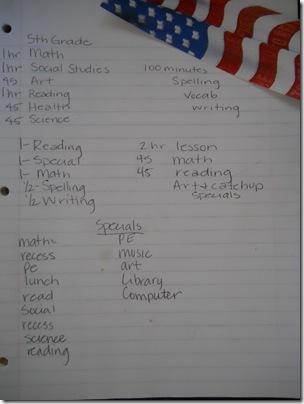 5th Grade
1hr Math
1hr Social Studies
45 Art
1hr Reading
45 Health
45 Science
100 minutes
Spelling
Vocab
writing
1- Reading
1- Special
1- Math
1/2- Spelling
1/2 Writing
2 hr lesson
45 math
45 reading
Art + catchup
specials
Specials
math
recess
pe
lunch
read
Social
recess
science
reading
PE
music
art
Library
Computer